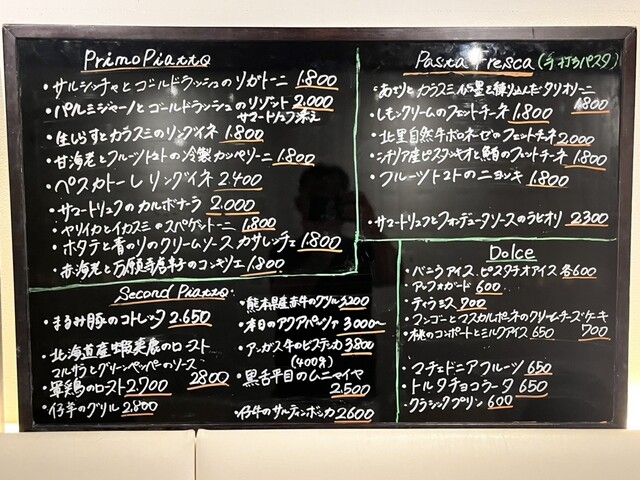 Primo Piatto
・サルシッチャとゴールドラッシュのリガトーニ 1.800
・パルミジャーノとゴールドラッシュのリゾット 2.000
サマートリュフ添え
・生しらすとカラスミのリングイネ 1.800
・甘海老とフルーツトマトの冷製カッペリーニ 1.800
・ペスカトーレ リングイネ 2.400
・サマートリュフのカルボナーラ 2.000
・ヤリイカとイカスミのスパゲットーニ 1.800
・ホタテと青のりのクリームソース カサレッチェ 1.800
・赤海老と万願寺唐辛子のコンキリエ 1.800
Pasta Fresca (手打ちパスタ)
・あさりとカラスミ 墨を練り込んだタリオリーニ
1.800
・レモンクリームのフェットチーネ 1.800
・北里自然牛ボロネーゼのフェットチーネ 2.000
・シチリア産ピスタッキオと鮪のフェットチーネ 1.800
・フルーツトマトのニョッキ 1.800
・サマートリュフとフォンデュータソースのラビオリ 2300
Second Piatto
・まるみ豚のコトレッタ 2.650
・北海道産蝦夷鹿のロースト
マルサラとグリーンペッパーのソース
2800
・軍鶏のロースト 2.700
・仔羊のグリル 2.800
・熊本県産赤牛のグリル 3200
・本日のアクアパッツァ 3000〜
・アンガス牛のビステッカ 3800
(400g)
・黒舌平目のムニャイヤ
2.500
・仔牛のサルティンボッカ 2600
Dolce
・バニラアイス、ピスタチオアイス 各600
・アッフォガード 600
・ティラミス 700
・マンゴーとマスカルポーネのクリームチーズケーキ
700
・桃のコンポートとミルクアイス 650
・マチェドニアフルーツ 650
・トルタチョコラータ 650
・クラシックプリン 600